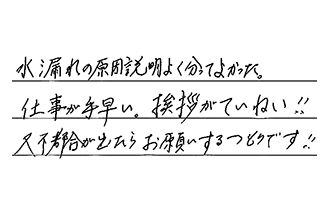 水漏れの原因説明よく分ってよかった。
仕事が手早い。挨拶がていねい!!
又不都合が出たらお願いするつもりです!!